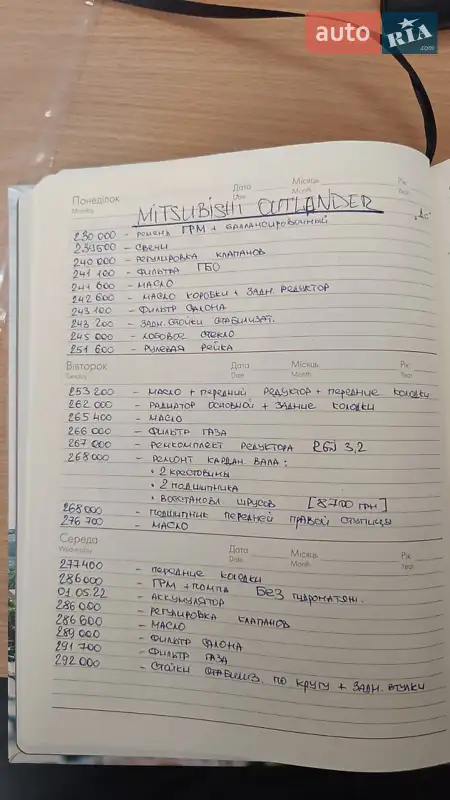 auto RIA .com
Понеділок Monday Дата Date Місяць Month Рік Year
MITSUBISHI OUTLANDER
230 000 - ремень ГРМ + баллансировочный
239500 - свечи
240 000 - РЕГУЛИРОВКА КЛАПАНОВ
241 100 - ФИЛЬТРА ГБО
241 600 - МАСЛО
242 600 - МАСЛО КОРОБКИ + ЗАДН. РЕДУКТОР
243 100 - ФИЛЬТР САЛОНА
243 200 - ЗАДН. СТОЙКИ СТАБИЛИЗАТ.
245 000 - ЛОБОВОЕ СТЕКЛО
251 600 - РУЛЕВАЯ РЕЙКА
Вівторок Tuesday Дата Date Місяць Month Рік Year
253 200 - МАСЛО + ПЕРЕДНИЙ РЕДУКТОР + ПЕРЕДНИЕ КОЛОДКИ
262 000 - РАДИАТОР ОСНОВНОЙ + ЗАДНИЕ КОЛОДКИ
265 400 - МАСЛО
266 000 - ФИЛЬТР ГАЗА
267 000 - РЕМКОМПЛЕКТ РЕДУКТОРА 3,2
268 000 - РЕМОНТ КАРДАН. ВАЛА:
• 2 КРЕСТОВИНЫ
• 2 ПОДШИПНИКА
• ВОССТАНОВЛ ШРУСОВ [8700 ГРН]
268 000 - ПОДШИПНИК ПЕРЕДНЕЙ ПРАВОЙ СТУПИЦЫ
276 700 - МАСЛО
Середа Wednesday Дата Date Місяць Month Рік Year
277400 - ПЕРЕДНИЕ КОЛОДКИ
286000 - ГРМ + ПОМПА БЕЗ ГИДРОНАТЯЖ.
01.05.22 - АККУМУЛЯТОР
286 000 - РЕГУЛИРОВКА КЛАПАНОВ
286 600 - МАСЛО
289 000 - ФИЛЬТР САЛОНА
291 700 - ФИЛЬТР ГАЗА
292 000 - СТОЙКИ СТАБИЛИЗ. ПО КРУГУ + ЗАДН. ВТУЛКИ